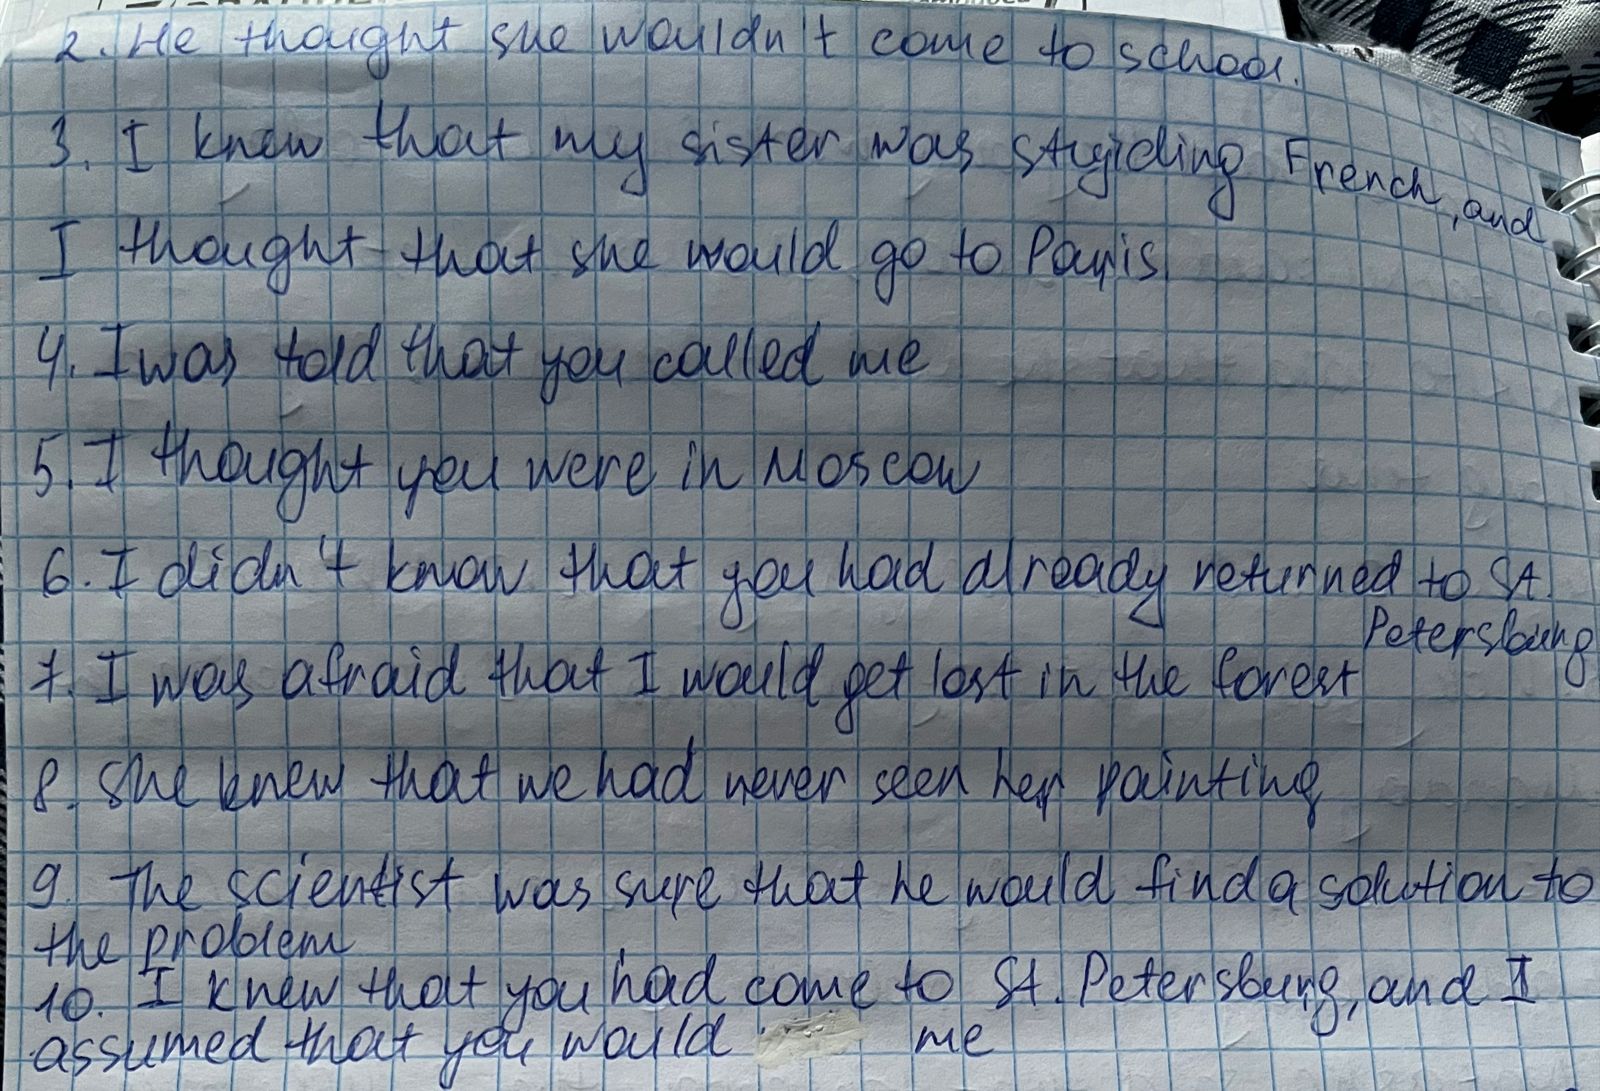 2. He thought she wouldn't come to school.
3. I knew that my sister was studiding French, and
I thought that she would go to Paris
4. I was told that you called me
5. I thought you were in Moscow
6. I didn't know that you had already returned to St.
Petersburg
7. I was afraid that I would get lost in the forest
8. She knew that we had never seen her painting
9. The scientist was sure that he would find a solution to
the problem
10. I knew that you had come to St. Petersburg, and I
assumed that you would me